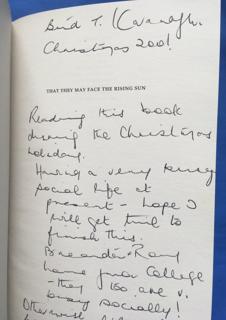 T. Kavanagh.
Christmas 2001
THAT THEY MAY FACE THE RISING SUN
Reading this book
during the Christmas
holidays.
Having a very busy
social life at
present - hope I
will get time to
finish this.
home from College
- they too are v.
busy socially!
Otherwise